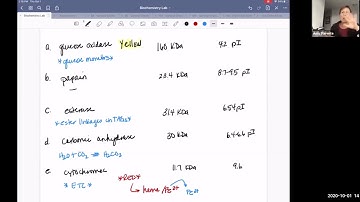 Biochemistry Lab
a. glucose oxidase yellow 160 KDa 4.2 pI
*glucose monitors*
b. papain 23.4 KDa 8.7-9.5 pI
c. esterase
*ester linkages in TAGs*
d. carbonic anhydrase 30 KDa 6.4-6.6 pI
H2O + CO2 ⇌ H2CO3
e. cytochrome c 11.7 KDa 9.6
*ETC* *RED* heme/Fe3+ Fe2+
2020-10-01 14